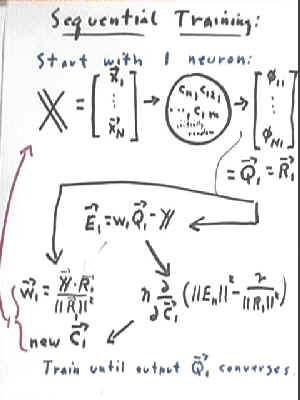 Sequential Training:
Start with 1 neuron:
𝕏 = [x⃗₁ ⋮ x⃗_N] → (c₁₁, c₁₂, ..., c₁ₘ initially random) → [ϕ₁₁ ⋮ ϕ_N₁]
= Q⃗₁ = R⃗₁
E⃗₁ = w₁Q⃗₁ - Y
w⃗₁ = Y⃗·R⃗₁ / ||R⃗₁||²
η ∂/∂c⃗₁ (||E₁||² - γ/||R₁||²)
new c⃗₁
Train until output Q⃗₁ converges.